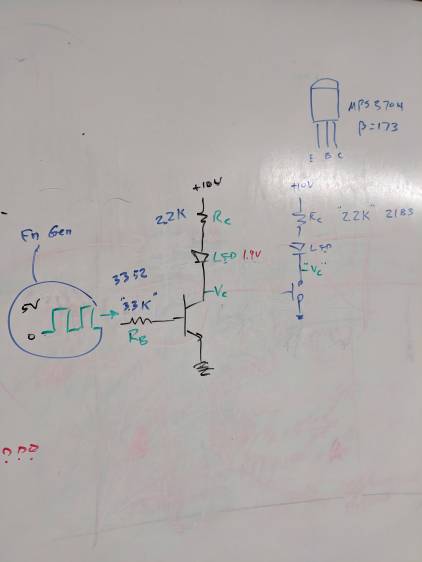 MPS3704
β=173
E B C
+10V
2.2K Rc
LED 1.9V
Vc
+10V
Rc "2.2K" 2183
LED
"Vc"
Fn Gen
5V
0
3352
"3.3K"
RB
???